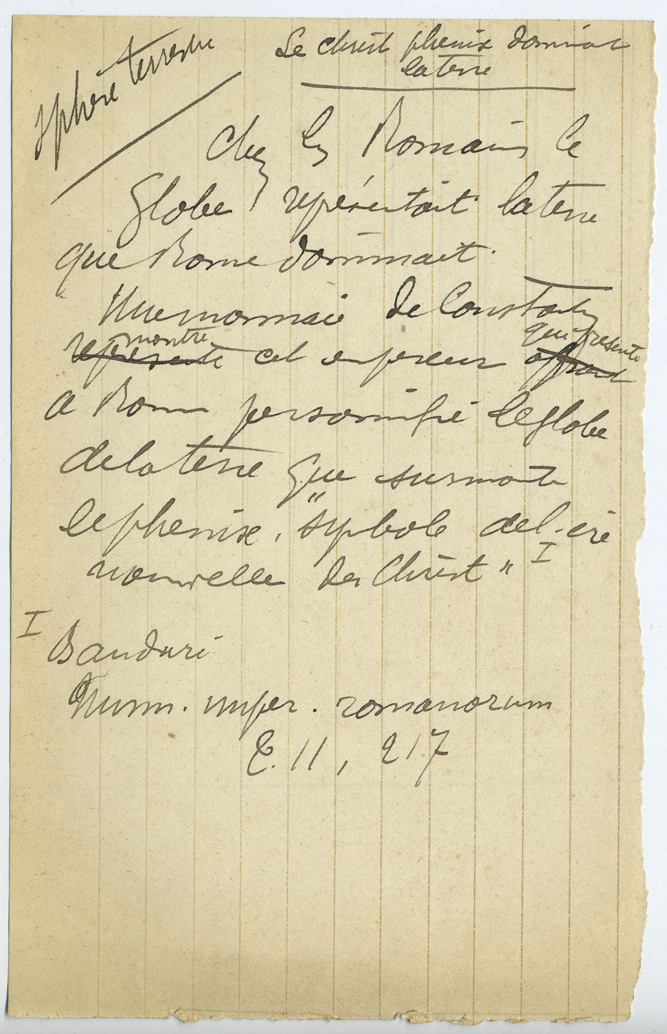 Sphère terrestre
Le christ phenix dominant
la terre
Chez les Romains le
Globe représentait la terre
que Rome dominait.
Une monnaie de Constantin
montre qui presente
represente cet empereur offrant
a Rome personnifié le globe
de la terre que surmonte
le phenix, "symbole de l'ère
nouvelle du Christ" I
I
Banduri
Numm. imper. romanorum
T. II, 217